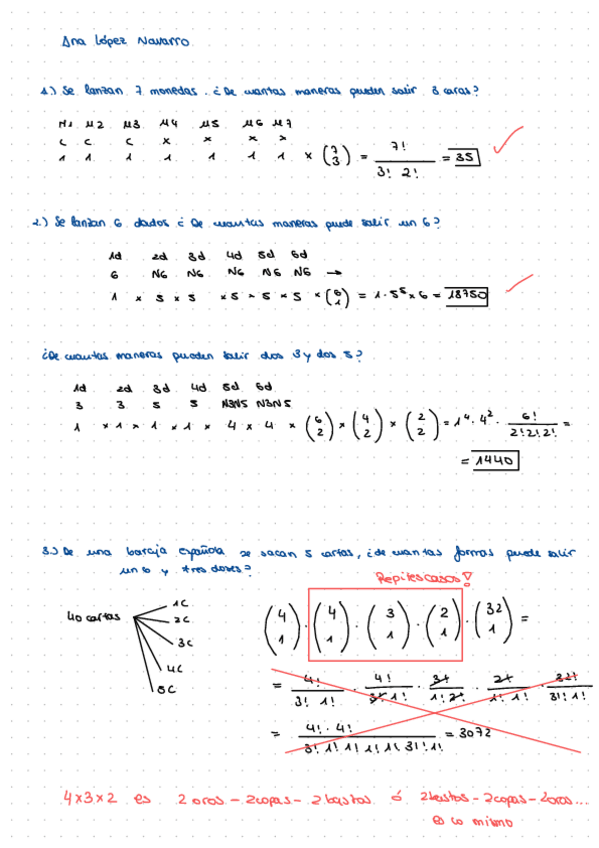 Ana López Navarro
1.) Se lanzan 7 monedas. ¿De cuantas maneras pueden salir 3 caras?
M1 M2 M3 M4 M5 M6 M7
C C C X X X X
1 1 1 1 1 1 1 × (7 3) = 7! / 3! 2! = 35
2.) Se lanzan 6 dados ¿De cuantas maneras puede salir un 6?
1d 2d 3d 4d 5d 6d
6 N6 N6 N6 N6 N6 →
1 × 5 × 5 × 5 × 5 × 5 × (6 1) = 1 · 5⁵ × 6 = 18750
¿De cuantas maneras pueden salir dos 3 y dos 5?
1d 2d 3d 4d 5d 6d
3 3 5 5 N3N5 N3N5
1 × 1 × 1 × 1 × 4 × 4 × (6 2) × (4 2) × (2 2) = 1⁴ · 4² · 6! / 2! 2! 2! =
= 1440
3.) De una baraja española se sacan 5 cartas, ¿de cuantas formas puede salir
un 6 y tres doses?
Repites casos!
40 cartas 1C 2C 3C 4C 5C
(4 1) · (4 1) · (3 1) · (2 1) · (32 1) =
= 4! / 3! 1! · 4! / 3! 1! · 3! / 1! 2! · 2! / 1! 1! · 32! / 31! 1!
= 4! · 4! / 3! 1! 1! 1! 1! 31! 1! = 3072
4×3×2 es 2 oros - 2 copas - 2 bastos ó 2 bastos - 2 copas - 2 oros...
es lo mismo